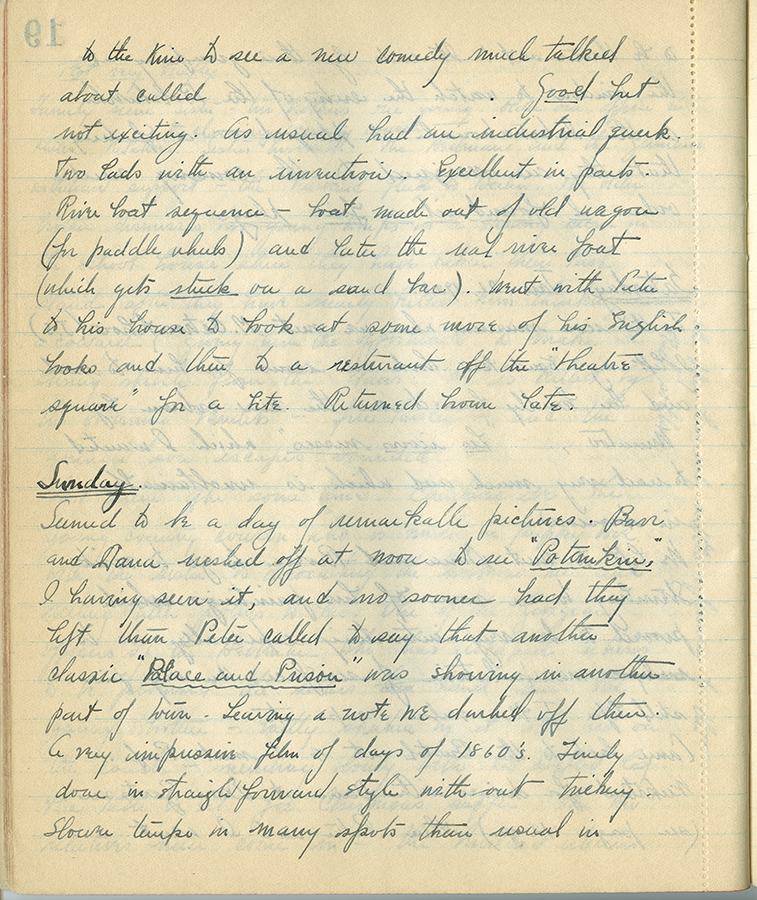 to the Kino to see a new comedy much talked
about called . Good but
not exciting. As usual had an industrial quirk.
Two lads with an invention. Excellent in parts.
River boat sequence – boat made out of old wagon
(for paddle wheels) and later the real river boat
(which gets stuck on a sand bar). Went with Pete
to his house to look at some more of his English
books and then to a resturant off the "theatre
square" for a bite. Returned home late.
Sunday.
Seemed to be a day of remarkable pictures. Barr
and Dana rushed off at noon to see "Potemkin,"
I having seen it, and no sooner had they
left than Pete called to say that another
classic "Palace and Prison" was showing in another
part of town. Leaving a note we dashed off then.
A very impressive film of days of 1860's. Finely
done in straightforward style with out trickery.
Slower tempo in many spots than usual in
19